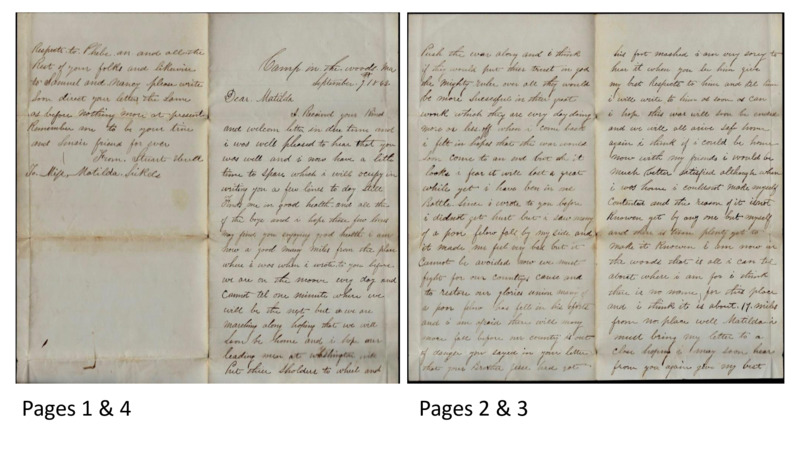 Respects to Phebe an and all the
Rest of your folks and likewise
to Samuel and Nancy pleas write
Soon direct your letter the same
as before nothing more at present
Remember me to be your true
and Sincir friend for ever
From Stuart
To Miss Matilda Sickels
Camp in the woods
September 7th 186
Dear Matilda
I Received your kind
and welcom letter in due time and
i was well pleased to hear that you
was well and i now have a little
time to spare which i will occupy in
writing you a few lines to day
Finds me in good health and all the
of the boys and i hope these few lines
may find you enjoying good health i am
now a good many miles from the place
where i was when i wrote to you before
we are on the moove evry day and
Cannot tel one minute where we
will be the next but as we are
marching along hoping that we will
soon be home and i hope our
leading men at Washington will
Put thire Sholders to wheel and
Push the war along and i think
if they would put thire trust in god
the mighty ruler over all they would
be more Sucessful in thire great
work which they are evry day doing
more or less off when i come have
i felt in hopes that the war would
soon come to an end but oh it
looks i fear it will last a great
while yet i have ben in one
Battle Since i wrote to you before
i didnt get hurt but i saw many
of a poor felow fall by my side and
it made me feel but it
Cannot be avoided now we must
fight for our countrys cause and
to restore our glories union many
a poor felow has fell in the
and i am afraid there will many
more fall before our country is out
of danger you sayed in your letter
that your Brother Jesse had got
his foot mashed i am very sorry to
hear it when you see him give
my best Respects to him and tel him
i will write to him as soon as i can
i hope this war will soon be ended
and we will all arive safe home
again i think if i could be home
now with my friends i would be
much better satisfied although when
i was home i couldnt made myself
Contented and the reason of it is not
Knowen yet by any one but myself
and there is time plenty yet to
made it Knowen i am now in
the woods that is all i can tel
about where i am for i think
ther is no name for this place
and i think its is about 17 miles
from no place well Matilda i
must bring my letter to a
close hoping i may soon hear
from you again give my best
Pages 1 & 4
Pages 2 & 3